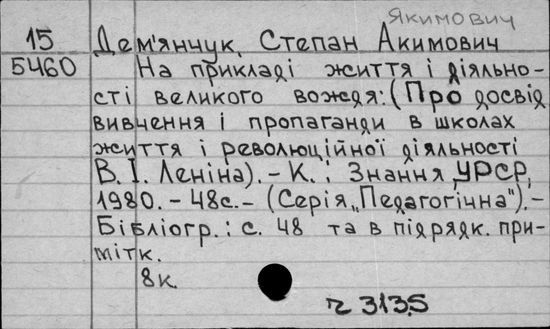 Якимович
15 Дем'янчук, Степан Акимович
5460 На прикладі життя і діяльно-
сті великого вождя: (Про досвід
вивчення і пропаганди в школах
життя і революційної діяльності
В. І. Леніна). - К. : Знання УРСР,
1980. - 48с. - (Серія „Педагогічна"). -
Бібліогр. : с. 48 та в підрядк. при-
мітк.
8к.
ч 313,5